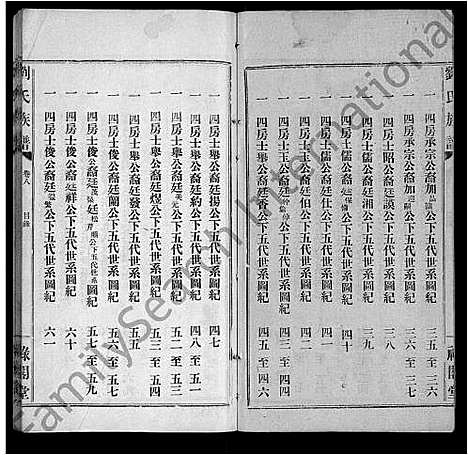 劉氏族譜
一 四房士承宗公裔加 公下五代世系圖紀 三五至三六
一 四房士承宗公裔加 公下五代世系圖紀 三六至三七
一 四房士昭公裔廷談公下五代世系圖紀 三八
一 四房士儒公裔廷湘公下五代世系圖紀 三九
一 四房士儒公裔廷 公下五代世系圖紀 四十
一 四房士玉公裔廷 公下五代世系圖紀
一 四房士玉公裔廷伯公下五代世系圖紀
一 四房士舉公裔廷香公下五代世系圖紀 四五至四六
祿閣堂
一 四房士舉公裔廷揚公下五代世系圖紀 四七
一 四房士舉公裔廷約公下五代世系圖紀 四八至五一
一 四房士舉公裔廷 公下五代世系圖紀 五二
一 四房士舉公裔廷煜公下五代世系圖紀 五三至五四
一 四房士舉公裔廷發公下五代世系圖紀 五五
一 四房士俊公裔廷蘭公下五代世系圖紀 五六至五七
一 四房士俊公裔廷 廷 公下五代世系圖紀 五七至五九
一 四房士俊公裔廷祥公下五代世系圖紀 六十
一 四房士俊公裔廷 公下五代世系圖紀 六一
劉氏族譜 卷八 目錄 祿閣堂
FamilySearch International